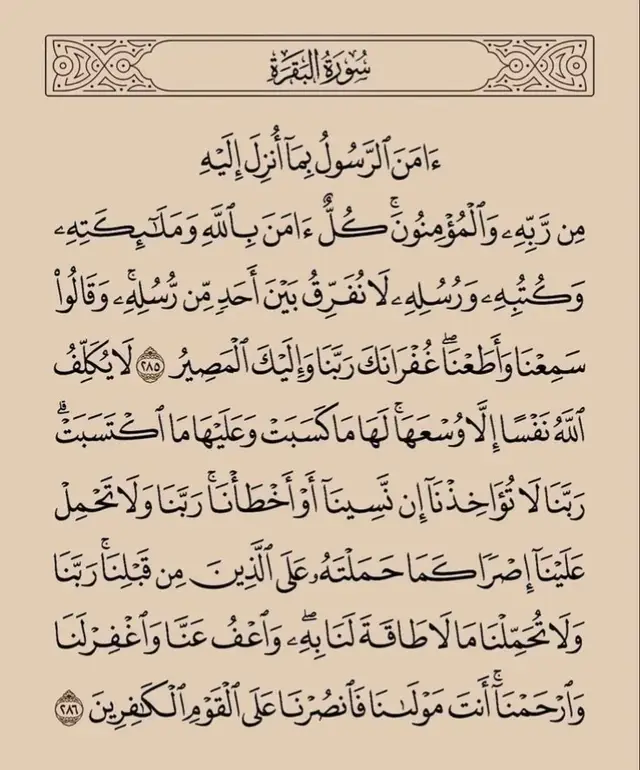 سُورَةُ الْبَقَرَةِ
ءَامَنَ ٱلرَّسُولُ بِمَآ أُنزِلَ إِلَيْهِ
مِن رَّبِّهِۦ وَٱلْمُؤْمِنُونَۚ كُلٌّ ءَامَنَ بِٱللَّهِ وَمَلَـٰٓئِكَتِهِۦ
وَكُتُبِهِۦ وَرُسُلِهِۦ لَا نُفَرِّقُ بَيْنَ أَحَدٍ مِّن رُّسُلِهِۦۚ وَقَالُوا۟
سَمِعْنَا وَأَطَعْنَاۖ غُفْرَانَكَ رَبَّنَا وَإِلَيْكَ ٱلْمَصِيرُ ٢٨٥ لَا يُكَلِّفُ
ٱللَّهُ نَفْسًا إِلَّا وُسْعَهَاۚ لَهَا مَا كَسَبَتْ وَعَلَيْهَا مَا ٱكْتَسَبَتْۗ
رَبَّنَا لَا تُؤَاخِذْنَآ إِن نَّسِينَآ أَوْ أَخْطَأْنَاۚ رَبَّنَا وَلَا تَحْمِلْ
عَلَيْنَآ إِصْرًا كَمَا حَمَلْتَهُۥ عَلَى ٱلَّذِينَ مِن قَبْلِنَاۚ رَبَّنَا
وَلَا تُحَمِّلْنَا مَا لَا طَاقَةَ لَنَا بِهِۦۖ وَٱعْفُ عَنَّا وَٱغْفِرْ لَنَا
وَٱرْحَمْنَآۚ أَنتَ مَوْلَىٰنَا فَٱنصُرْنَا عَلَى ٱلْقَوْمِ ٱلْكَـٰفِرِينَ ٢٨٦